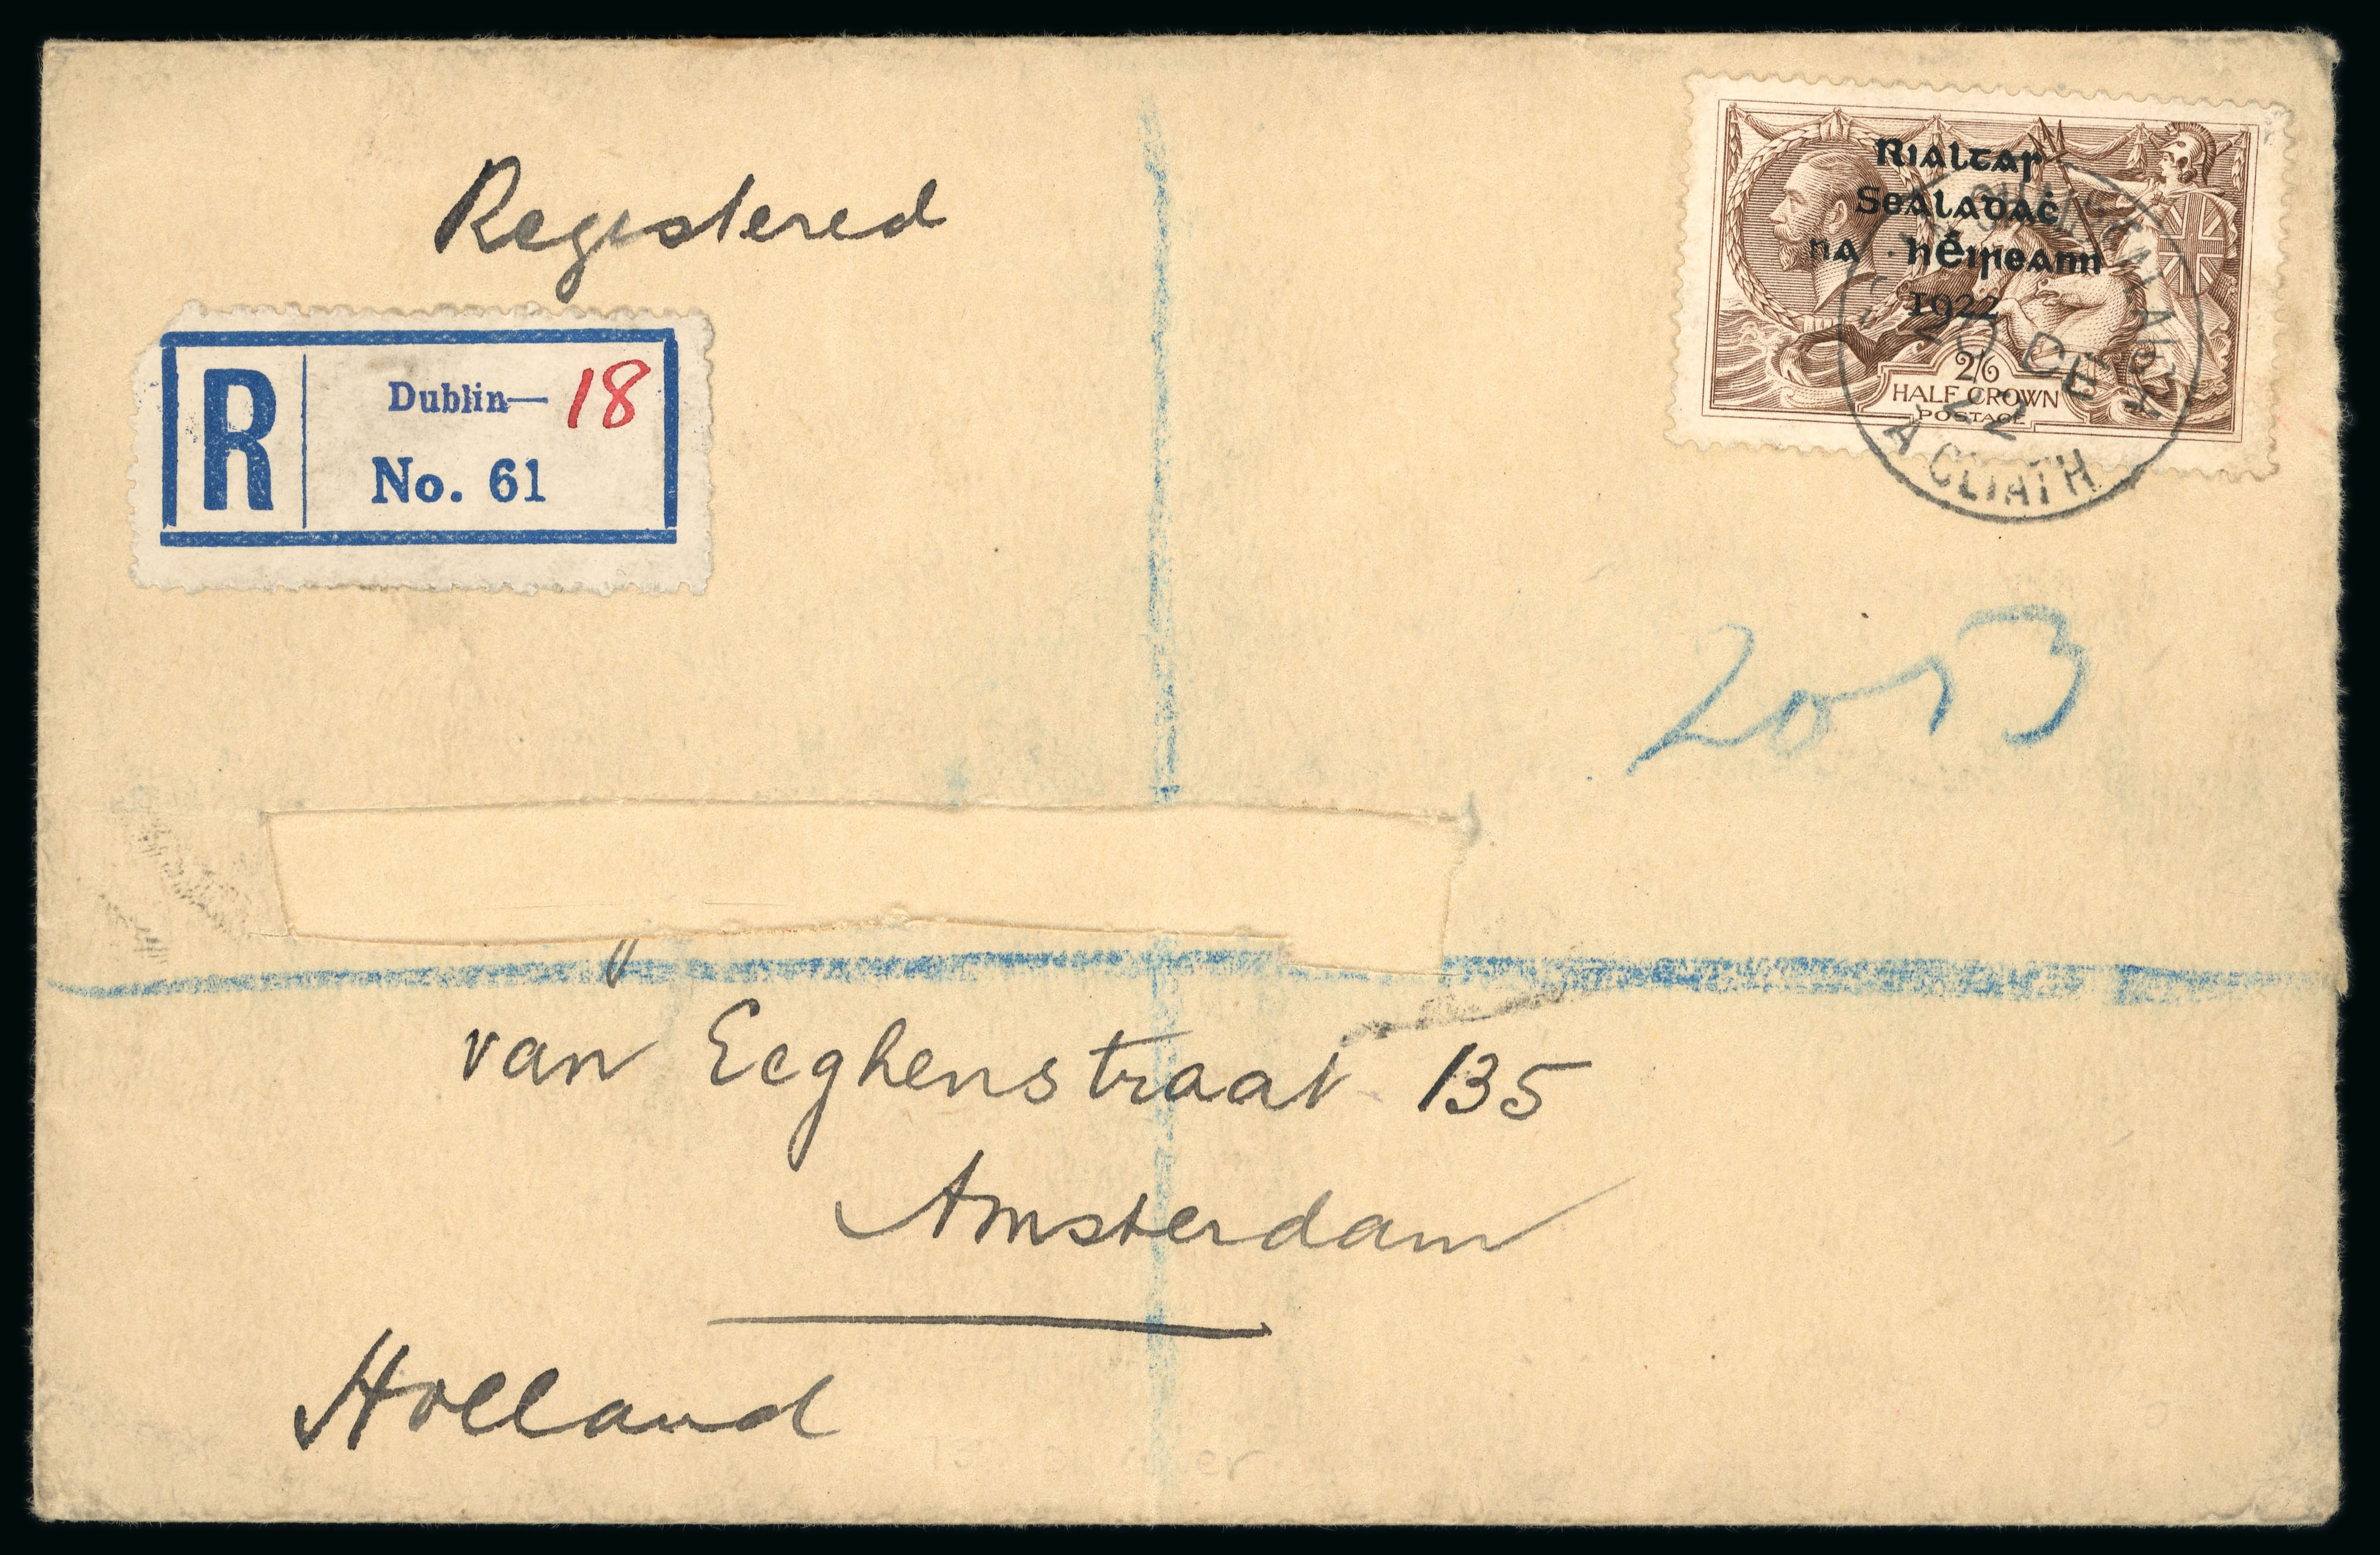 Registered
R
Dublin— 18
No. 61
Rialtas
Sealadaċ
na hÉireann
1922
2/6
HALF CROWN
POSTAGE
20 DE
22
A CLIATH
2053
van Eeghenstraat 135
Amsterdam
Holland